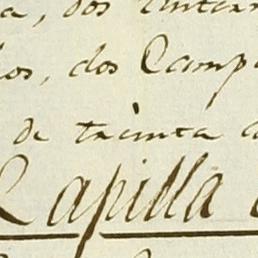 a, dos
os, dos Camp
de treinta
Capilla